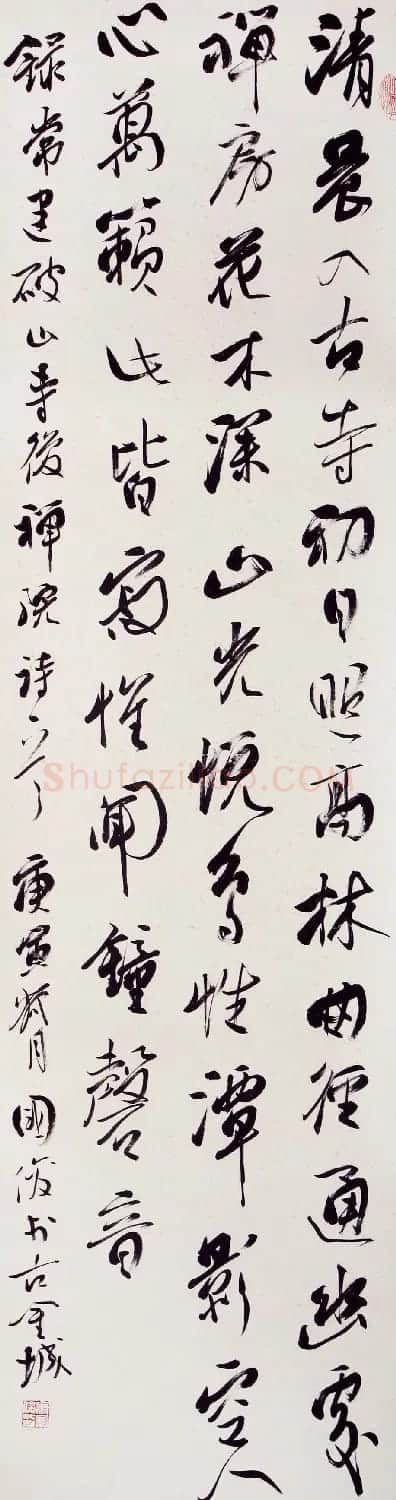 清晨入古寺初日照高林曲徑通幽處
禪房花木深山光悦鳥性潭影空人
心萬籟此皆寂惟聞鐘磬音
録常建破山寺後禪院詩一首 庚寅月國俊於古金城